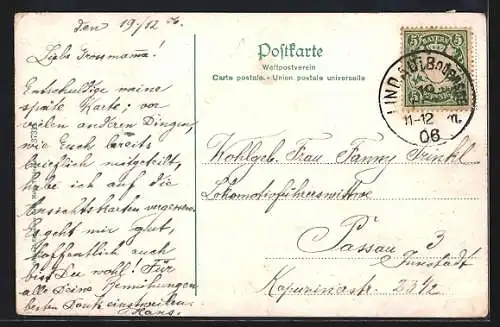 den 19./12. 06.
Liebe Grossmama!
Entschuldige meine
späte Karte; vor
vielen anderen Dingen,
wie Euch bereits
brieflich mitgeteilt,
habe ich auf die
Ansichtskarten vergessen.
Es geht mir gut,
Hoffentlich auch
bist Du wohl! Für
alle Deine Bemühungen
besten Dank einstweilen.
Hans.
Postkarte
Weltpostverein
Carte postale. - Union postale universelle
BAYERN
5 5
LINDAU
11-12
06
Wohlgeb. Frau Fanny Trinkl
Lokomotivführerswitwe
Passau 3
Innstadt
Kapuzinerstr.